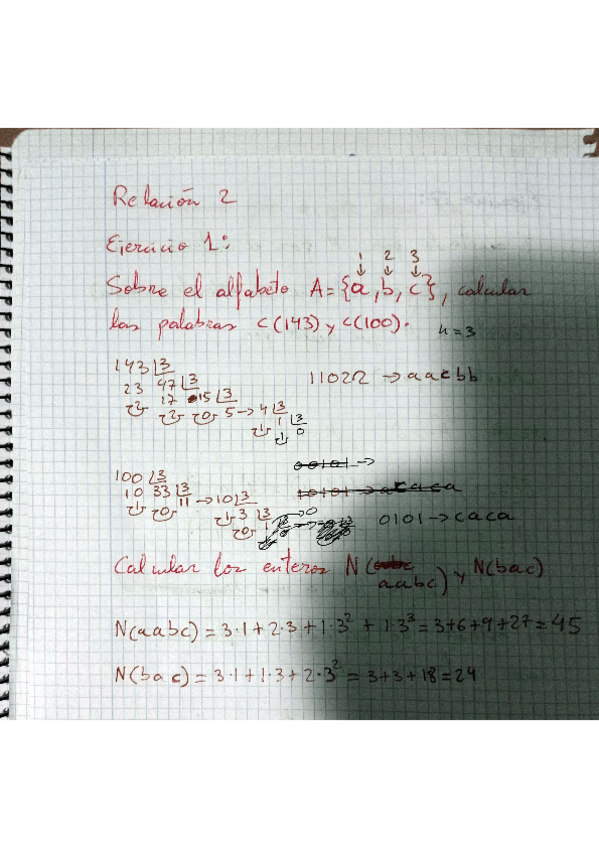 Relación 2
Ejercicio 1:
1 2 3
↓ ↓ ↓
Sobre el alfabeto A={a,b,c}, calcular
las palabras C(143) y C(100).
n=3
143 |3
23 47 |3
2 17 15 |3
2 0 5 → 4 |3
1 1 |3
1 0
11022 → aacbb
100 |3
10 33 |3
1 0 11 → 10 |3
1 3 |3
0 1
00101 →
10101 → acaca
0101 → caca
Calcular los enteros N(aabc) y N(bac)
N(aabc) = 3·1+2·3+1·3² + 1·3³ = 3+6+9+27 = 45
N(bac) = 3·1+1·3+2·3² = 3+3+18 = 24